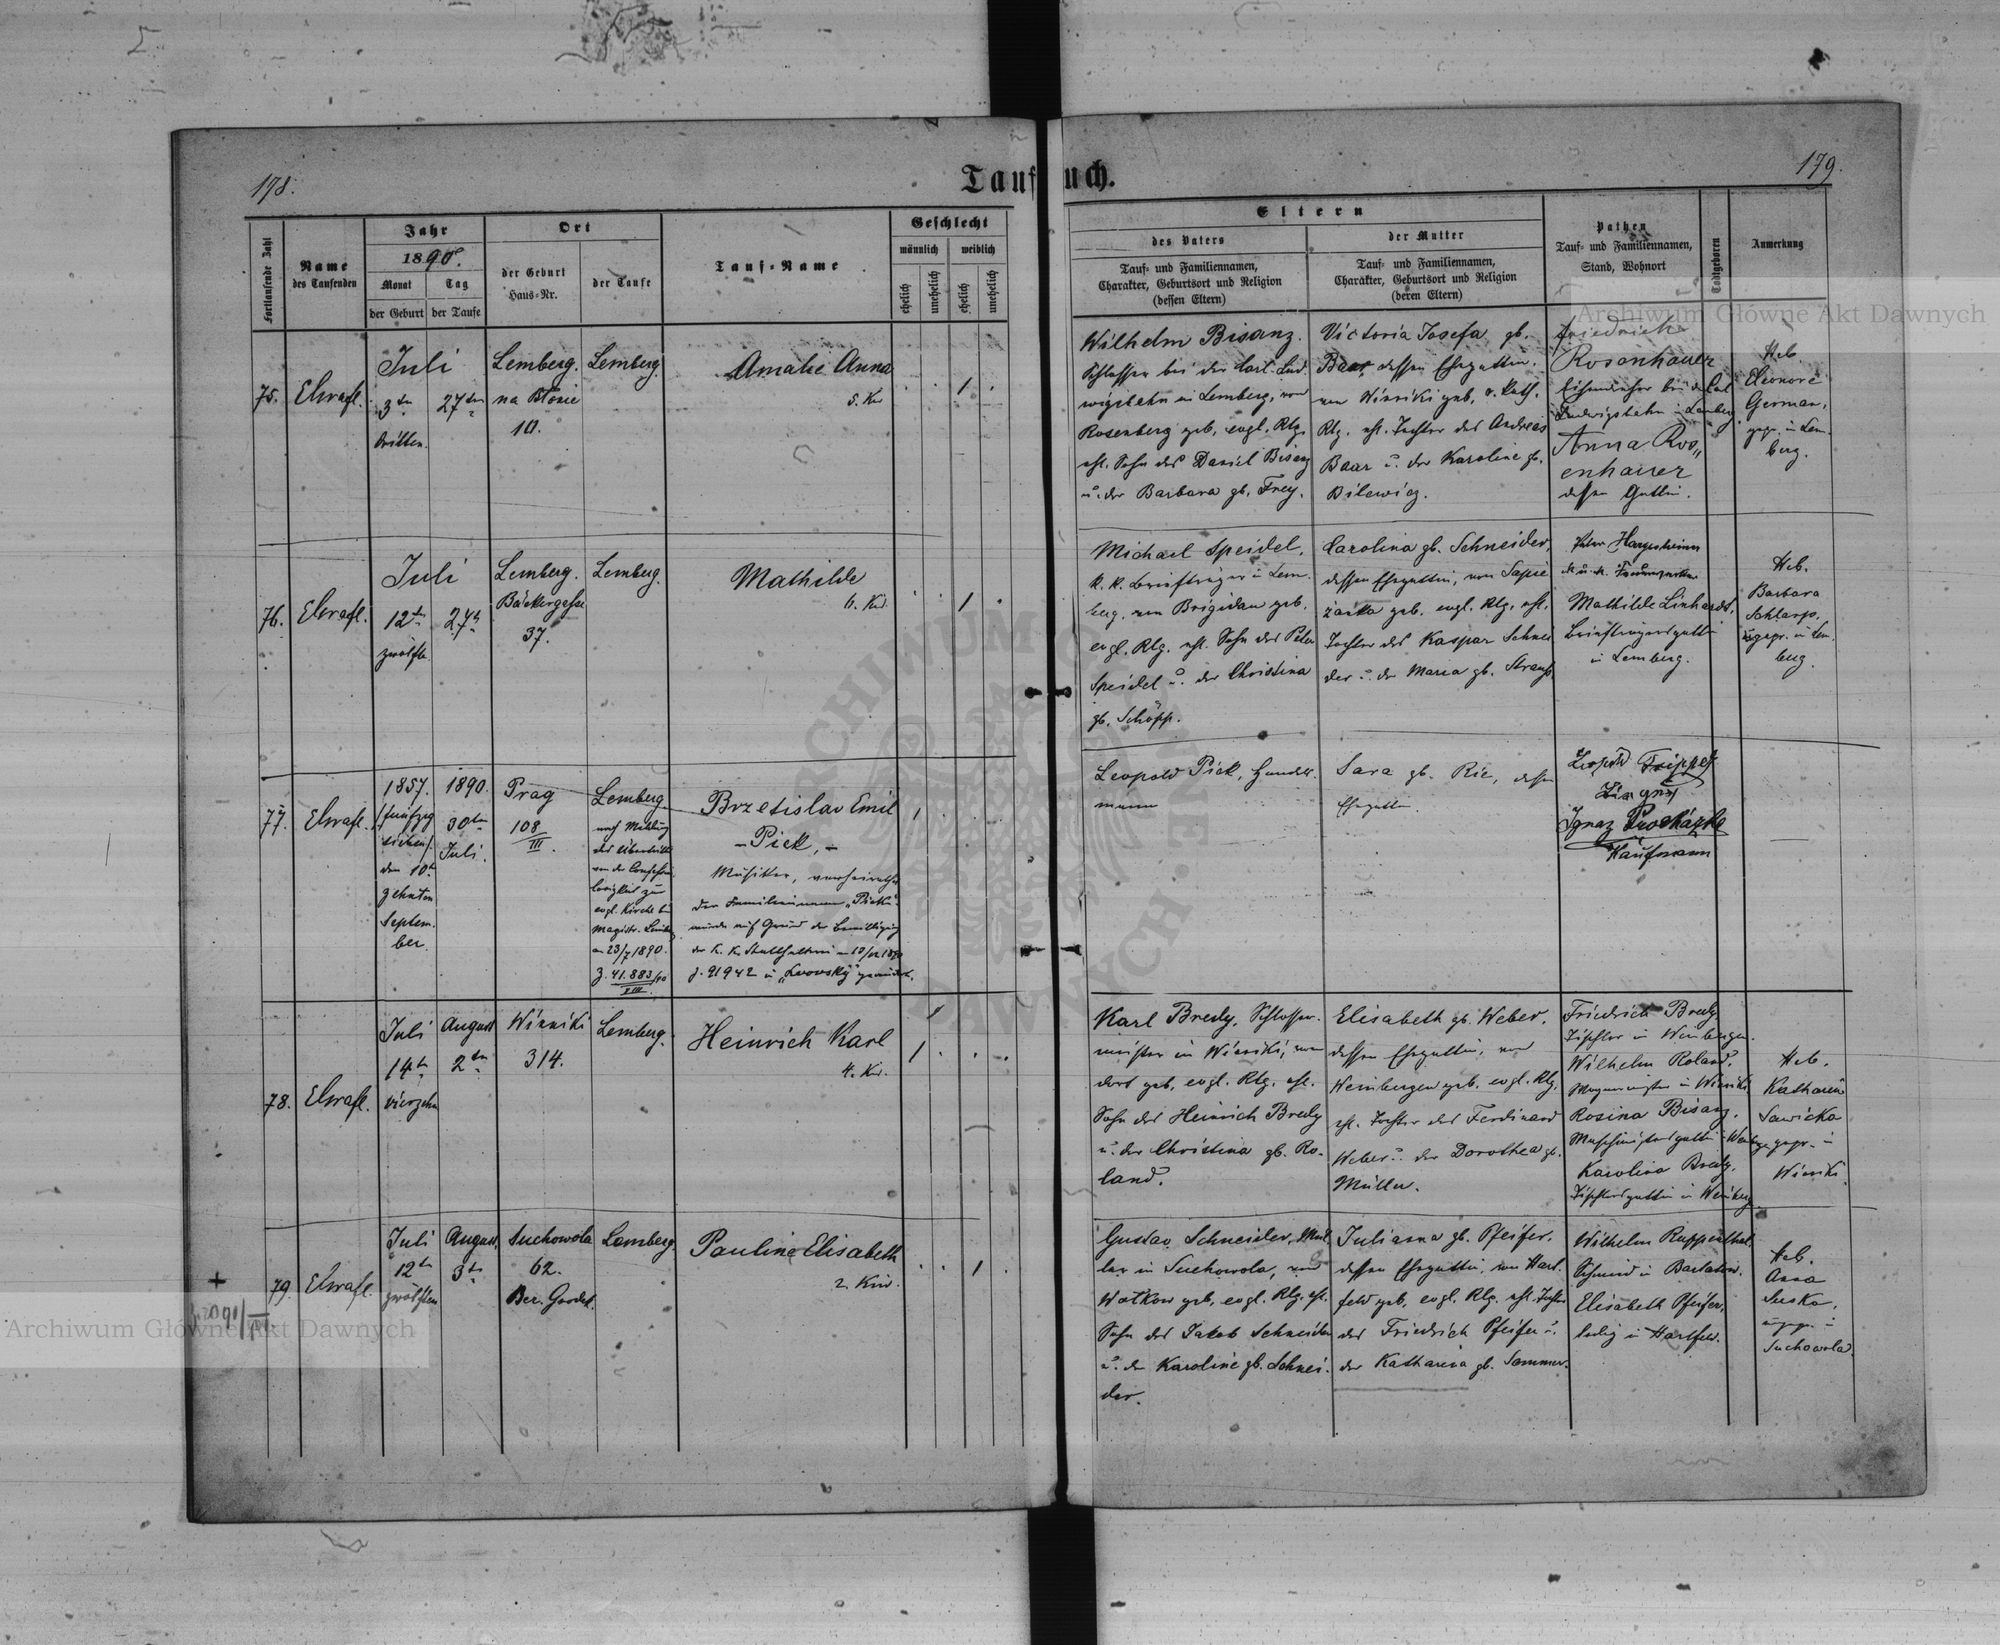 178.
Taufbuch.
179.
Fortlaufende Zahl
Name
des Taufenden
Jahr
1890.
Monat
Tag
der Geburt
der Taufe
Ort
der Geburt
Haus-Nr.
der Taufe
Tauf-Name
Geschlecht
männlich
weiblich
ehelich
unehelich
ehelich
unehelich
Eltern
des Vaters
der Mutter
Tauf- und Familiennamen,
Charakter, Geburtsort und Religion
(dessen Eltern)
Tauf- und Familiennamen,
Charakter, Geburtsort und Religion
(deren Eltern)
Pathen
Tauf- und Familiennamen,
Stand, Wohnort
Todtgeboren
Anmerkung
Archiwum Główne Akt Dawnych
75.
Juli
3ten
dritten
27ten
Lemberg.
na Błonie
10.
Lemberg.
Amalie Anna
5. Kd
1
Wilhelm Bisanz.
Schlosser bei der Carl Lud
wigsbahn in Lemberg, von
Rosenberg geb, evgl. Rlg.
ehl. Sohn des Daniel Bisanz
u. der Barbara gb. Frey.
Victoria Josefa gb.
Baar dessen Ehegattin,
von Winniki geb, r. kath.
Rlg. ehl. Tochter des Andreas
Baar u. der Karoline gb.
Bilewicz.
Friedrich
Rosenhauer
Ludwigsbahn in Lemberg
Anna Ros„
enhauer
dessen Gattin.
Heb.
Eleonore
German,
gepr. in Lem-
berg.
76.
Juli
12ten
zwölfte
27ten
Lemberg.
Bäckergasse
37.
Lemberg.
Mathilde
6. Kd.
1
Michael Speidel,
k. k. Briefträger in Lem-
berg, von Brigidau geb.
evgl. Rlg. ehl. Sohn des Peter
Speidel u. der Christina
gb. Schöpp.
Carolina gb. Schneider,
dessen Ehegattin, von Sapie
zanka geb. evgl. Rlg. ehl.
Tochter des Kaspar Schnei
der u. der Maria gb. Strauss
Peter Hargesheimer
Mathilde Linhardt,
Briefträgersgattin
in Lemberg.
Heb.
Barbara
Schlarp,
gepr. in Lem-
berg.
77.
1857.
/fünfzig
sieben/
den 10t
zehnten
Septem-
ber.
1890.
30ten
Juli.
Prag
108
III
Lemberg
nach Meldung
des Übertritts
von der Confessions
losigkeit zur
evgl. Kirche bei
Magistr. Lemberg
am 23/7 1890.
Z. 41.883/90
VIII.
Brzetislav Emil
- Pick, -
Musiker, verheirathet
Der Familienname „Pick"
wurde auf Grund der Bewilligung
der k. k. Statthalterei
Z. 91942 in „Lvovský" geändert.
1
Leopold Pick, Handels-
mann
Sara gb. Rie, dessen
Ehegattin.
Leopold
Ignaz Procházka
Kaufmann
78.
Juli
14ten
vierzehn
August
2ten
Winniki
314.
Lemberg.
Heinrich Karl
4. Kd.
1
Karl Bredy, Schlosser-
meister in Winniki, von
dort geb, evgl. Rlg. ehl.
Sohn des Heinrich Bredy
u. der Christina gb. Ro-
land.
Elisabeth gb. Weber,
dessen Ehegattin, von
Weinbergen geb. evgl. Rlg.
ehl. Tochter des Ferdinand
Weber u. der Dorothea gb.
Müller.
Friedrich Bredy
Tischler in Weinbergen.
Wilhelm Roland,
Wagnermeister in Winniki
Rosina Bisanz,
Karolina Bredy,
Tischlersgattin in Weinberg
Heb.
Katharina
Sawicka
gepr. in
Winniki.
79.
Juli
12ten
zwölften
August
3ten
Suchowola
62.
Bez. Grodek.
Lemberg.
Pauline Elisabeth
2. Kind.
1
Gustav Schneider, Mül
ler in Suchowola, von
Wolkow geb, evgl. Rlg. ehl.
Sohn des Jakob Schneider
u. der Karoline gb. Schnei-
der.
Juliana gb. Pfeifer,
dessen Ehegattin, von Hart-
feld geb, evgl. Rlg. ehl. Tochter
des Friedrich Pfeifer u.
der Katharina gb. Sommer.
Wilhelm Ruppenthal,
Schmied in Bartatow.
Elisabeth Pfeifer,
ledig in Hartfeld.
Heb.
Anna
Suska,
ungepr. in
Suchowola.
Archiwum Główne Akt Dawnych